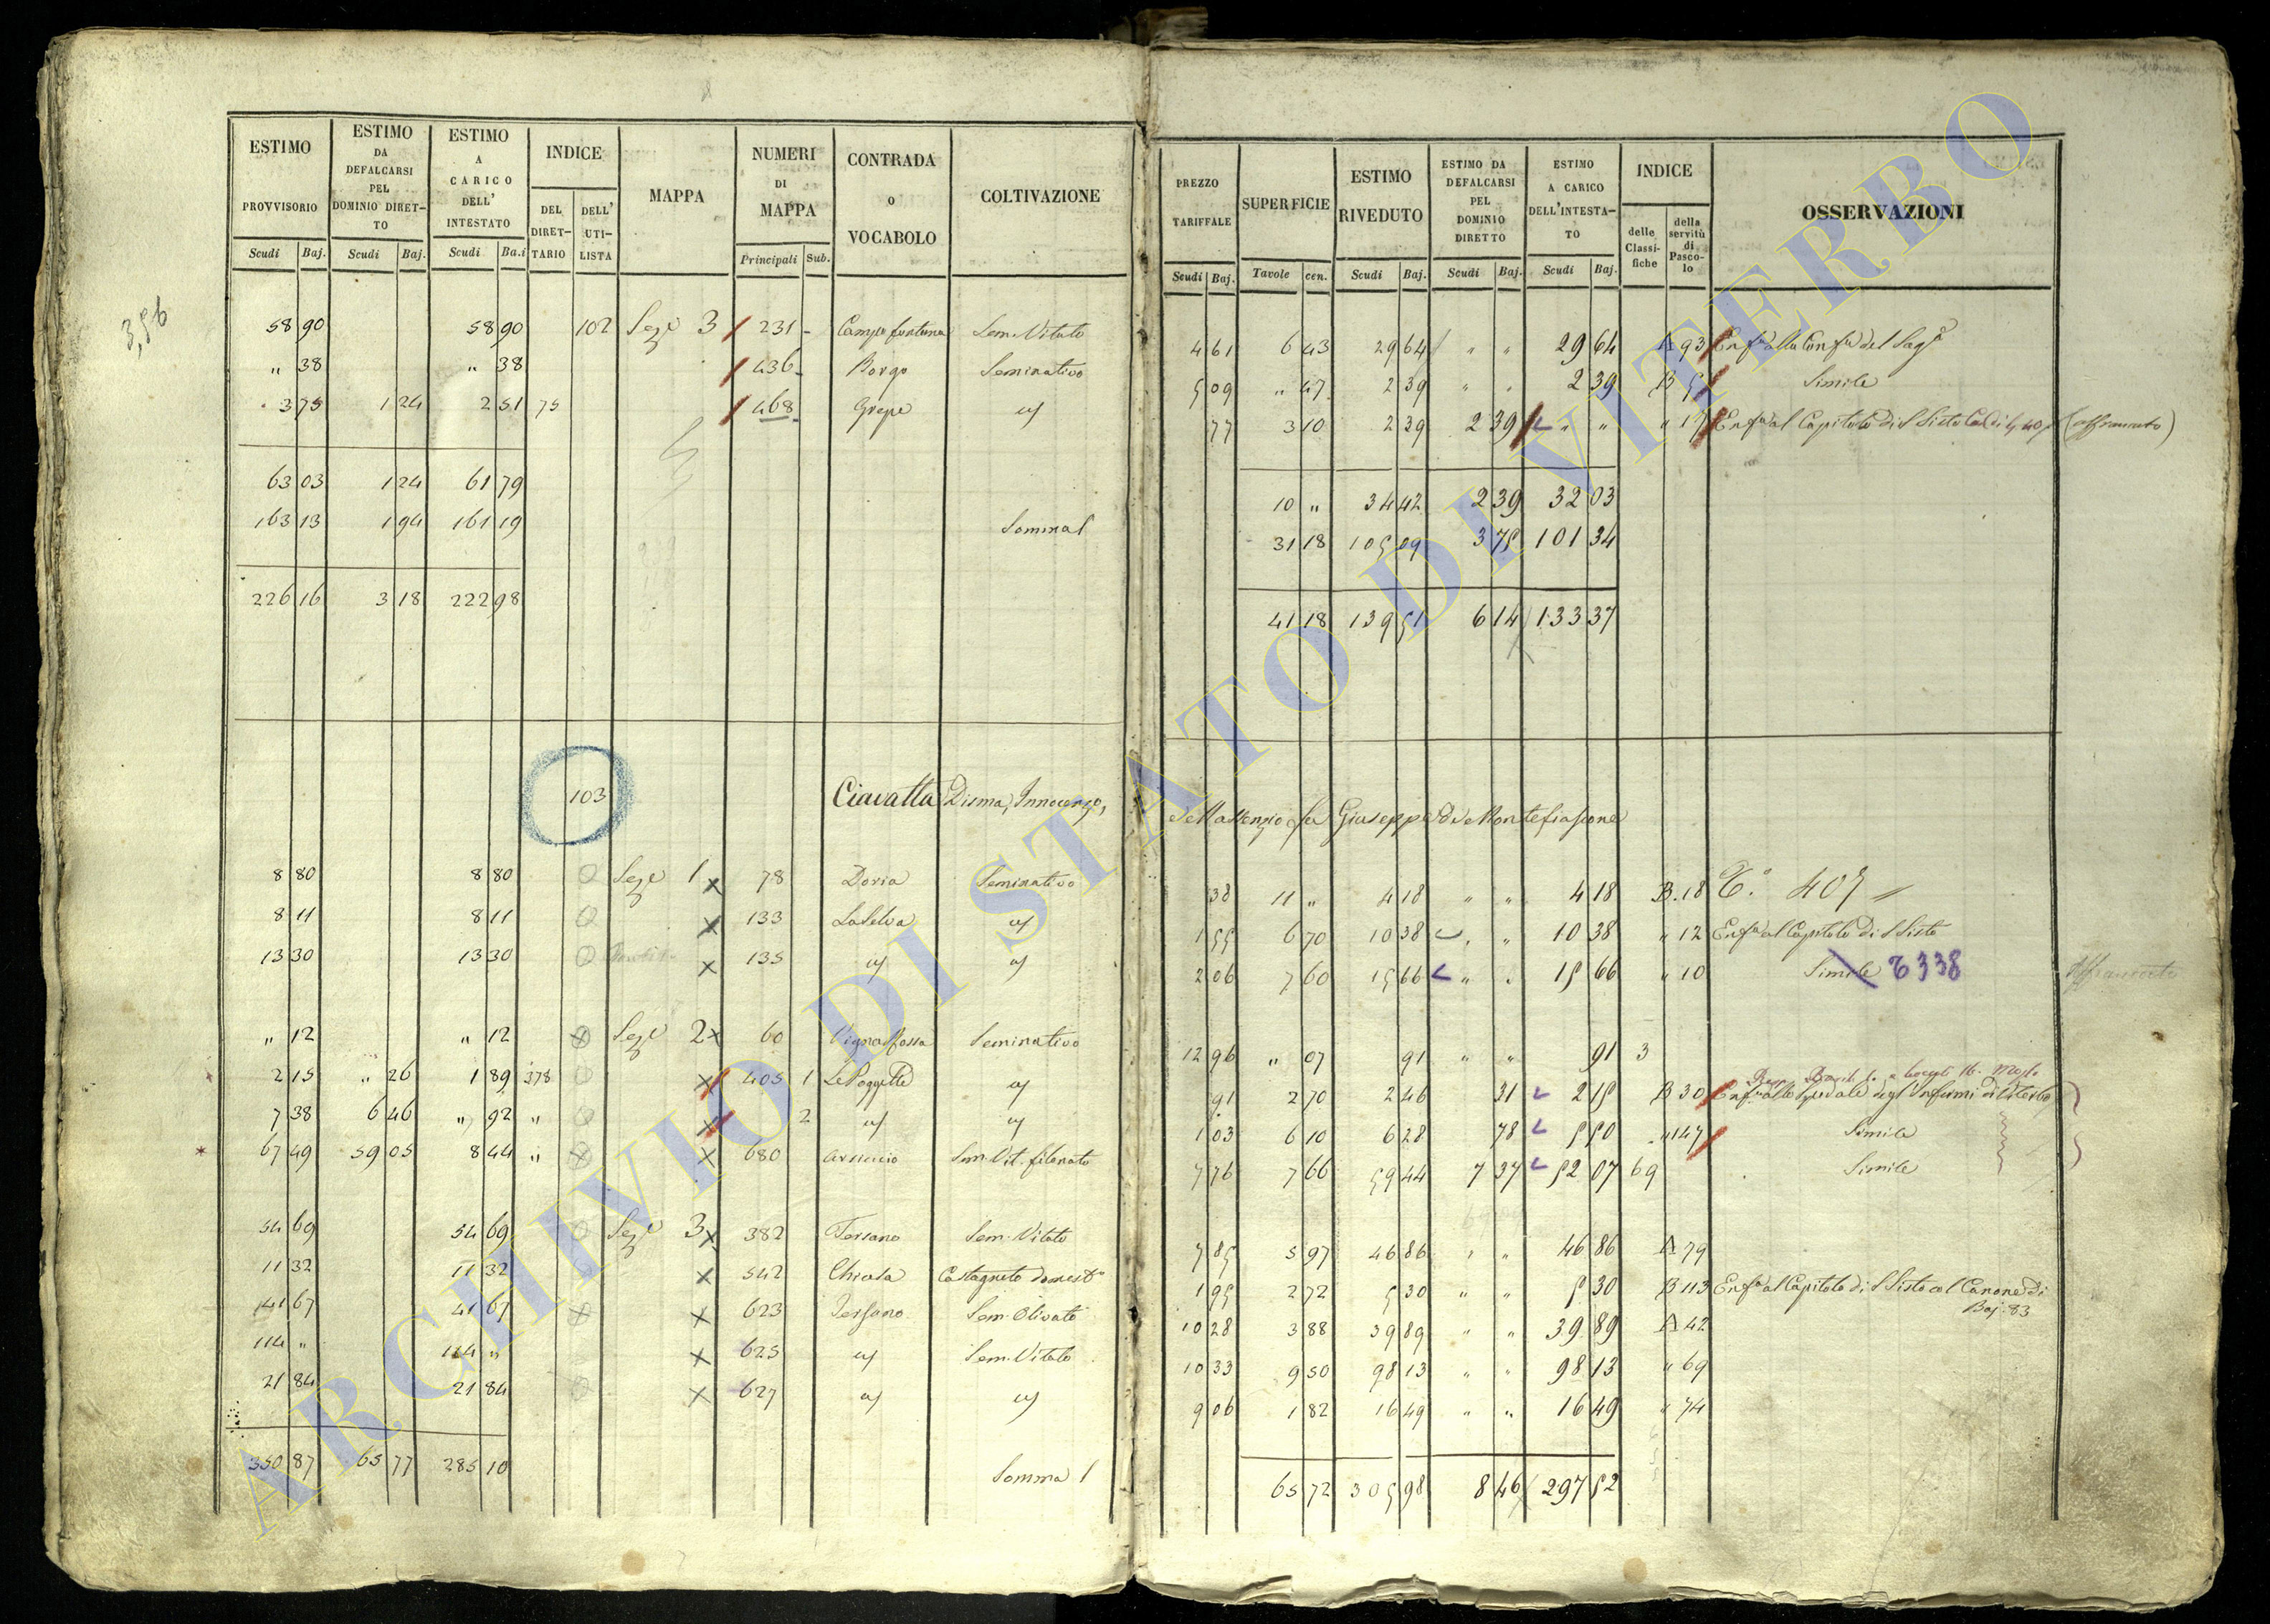 3,56
ESTIMO PROVVISORIO Scudi Baj.
ESTIMO DA DEFALCARSI PEL DOMINIO DIRETTO Scudi Baj.
ESTIMO A CARICO DELL' INTESTATO Scudi Ba.i
INDICE DEL DIRETTARIO DELL' UTILISTA
MAPPA
NUMERI DI MAPPA Principali Sub.
CONTRADA O VOCABOLO
COLTIVAZIONE
PREZZO TARIFFALE Scudi Baj.
SUPERFICIE Tavole cen.
ESTIMO RIVEDUTO Scudi Baj.
ESTIMO DA DEFALCARSI PEL DOMINIO DIRETTO Scudi Baj.
ESTIMO A CARICO DELL'INTESTATO Scudi Baj.
INDICE delle Classifiche della servitù di Pascolo
OSSERVAZIONI
58 90 58 90 102 Sez.e 3 231 - Campo fortuna Sem. Vitato 4 61 6 43 29 64 " " 29 64 A 93 Enf.a alla Conf.a del Sag.o
" 38 " 38 436 - Borgo Seminativo 5 09 " 47 2 39 " " 2 39 B 5 Simile
3 75 1 24 2 51 75 468 - Grepe id 77 3 10 2 39 2 39 " " " 17 Enf.a al Capitolo di S Sisto (affrancato)
63 03 1 24 61 79 10 " 34 42 2 39 32 03
163 13 1 94 161 19 Somma 1 31 18 105 09 3 75 101 34
226 16 3 18 222 98 41 18 139 51 6 14 133 37
103 Ciavatta Disma, Innocenzo, e Massenzio fu Giuseppe di Montefiascone
8 80 8 80 Sez.e 1 78 Doria Seminativo 38 11 " 4 18 " " 4 18 B. 18 T.o 405
8 11 8 11 133 La Selva id 1 55 6 70 10 38 " " 10 38 " 12 Enf.a al Capitolo di S Sisto
13 30 13 30 135 id id 2 06 7 60 15 66 " " 15 66 " 10 Simile T 338 Affrancato
" 12 " 12 Sez.e 2 60 Vigna fossa Seminativo 12 96 " 07 91 " " 91 3
2 15 " 26 1 89 378 405 1 Le Poggette id 91 2 70 2 46 31 2 15 B 30 Enf.a allo Spedale degl'Infermi di Viterbo
7 38 6 46 " 92 " 2 id id 1 03 6 10 6 28 78 5 50 " 147 Simile
67 49 59 05 8 44 " 680 Arsiccio Sem. Vit. filonato 7 76 7 66 59 44 7 37 52 07 69 Simile
54 69 54 69 Sez.e 3 382 Fersano Sem. Vitato 7 85 5 97 46 86 " " 46 86 A 79
11 32 11 32 542 Chiusa Castagneto domest.o 1 95 2 72 5 30 " " 5 30 B 113 Enf.a al Capitolo di S Sisto col Canone di Baj. 83
41 67 41 67 623 Fersano Sem. Olivato 10 28 3 88 39 89 " " 39 89 A 42
114 " 114 " 625 id Sem. Vitato 10 33 9 50 98 13 " " 98 13 " 69
21 84 21 84 627 id id 9 06 1 82 16 49 " " 16 49 " 74
350 87 65 77 285 10 Somma 1 65 72 305 98 8 46 297 52
ARCHIVIO DI STATO DI VITERBO